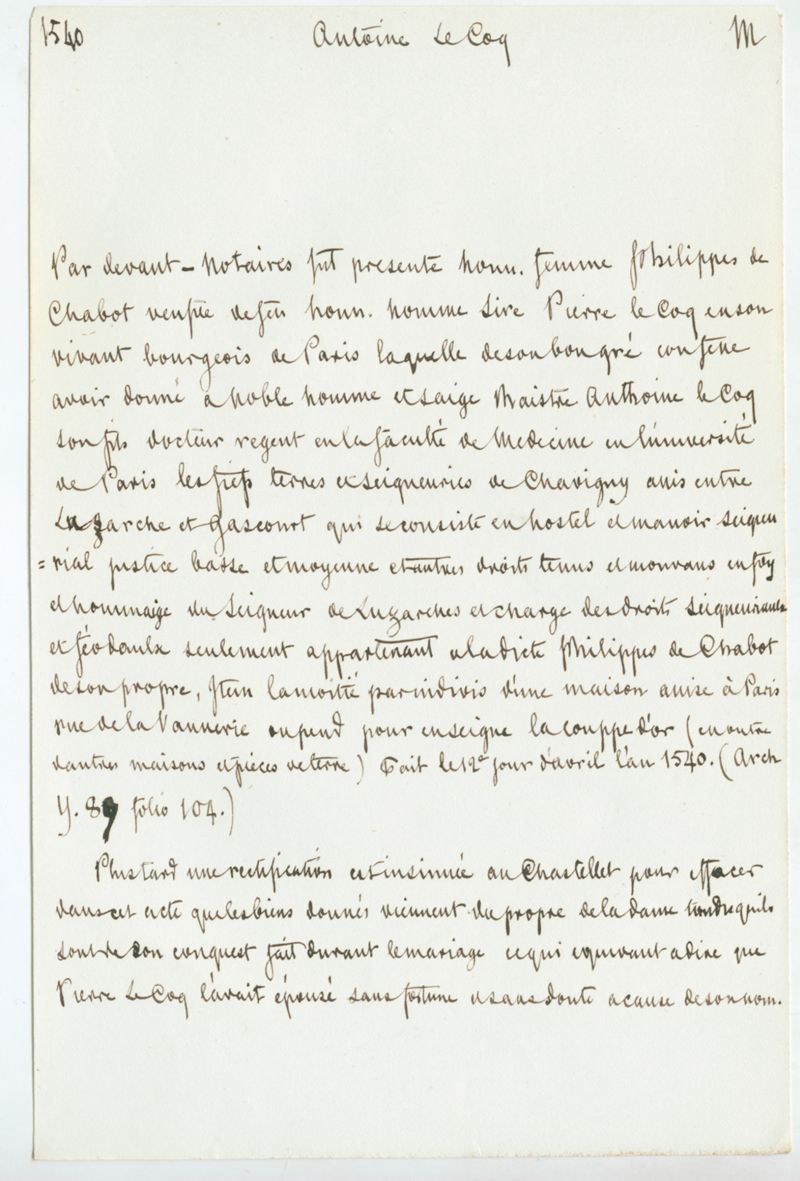 1540 Antoine Le Coq M
Par devant – Notaires fut presente honn. femme Philippes de
Chabot veufue de feu honn. homme Sire Pierre le Coq en son
vivant bourgeois de Paris laquelle de son bon gré confesse
avoir donné a Noble homme et saige Maistre Anthoine le Coq
son fils docteur regent en la faculté de Medecine en l'université
de Paris les fiefs terres et seigneuries de Chavigny assis entre
Luzarche et Gascourt qui se consiste en hostel et manoir seigneu
=rial justice basse et moyenne et autres droits tenus et mouvans en foy
et hommaige du Seigneur de Luzarches et charge des droits seigneuriaulx
et féodaulx seulement appartenant a la dicte Philippes de Chabot
de son propre, Item la moitié par indivis d'une maison assise à Paris
rue de la Vannerie ou pend pour enseigne la couppe d'or (en outre
d'autres maisons et pièces de terre) Fait le 12e jour d'avril l'an 1540. (Arch
Y. 89 folio 104.)
Plus tard une rectification est insinuée au Chastellet pour effacer
dans cet acte que les biens donnés viennent du propre de la dame tandis qu'ils
sont de son conquest fait durant le mariage ce qui equivaut a dire que
Pierre Le Coq l'avait épousé sans fortune et sans doute a cause de son nom.